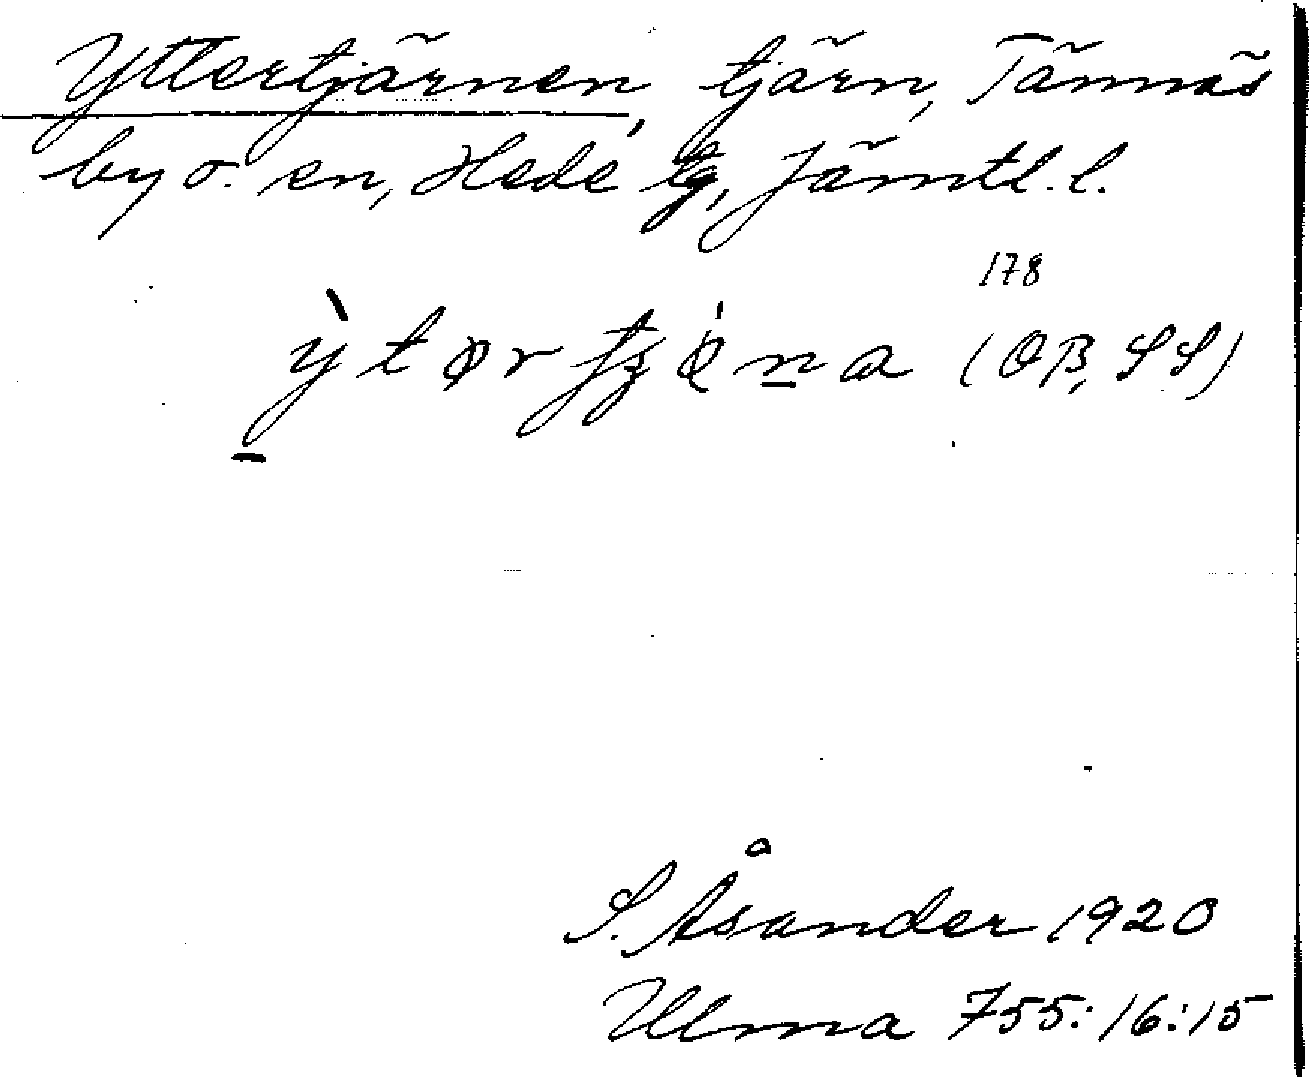 Yttertjärnen, tjärn, Tännäs
by o. sn, Hede tg, Jämtl. l.
178
(OB, SS)
S. Åsander 1920
Ulma 755:16:15